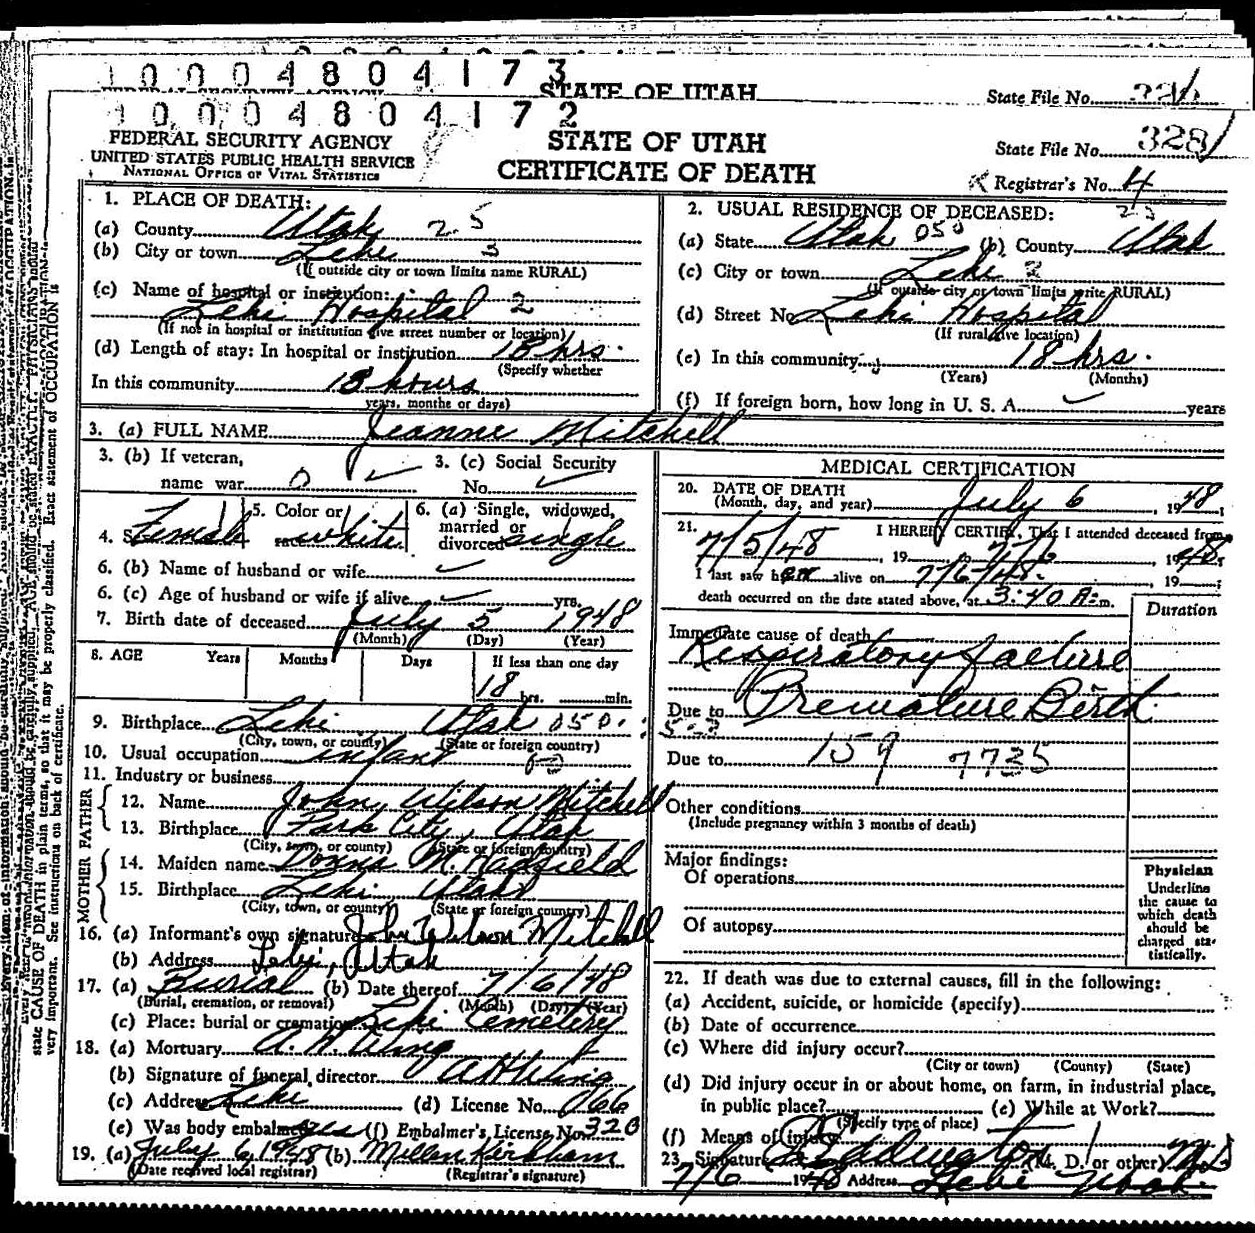 10004804173
STATE OF UTAH
State File No.
10004804172
FEDERAL SECURITY AGENCY
UNITED STATES PUBLIC HEALTH SERVICE
NATIONAL OFFICE OF VITAL STATISTICS
STATE OF UTAH
CERTIFICATE OF DEATH
State File No. 328
Registrar's No. 4
1. PLACE OF DEATH:
(a) County Utah 25
(b) City or town Lehi 3
(If outside city or town limits name RURAL)
(c) Name of hospital or institution:
Lehi Hospital 2
(If not in hospital or institution give street number or location)
(d) Length of stay: In hospital or institution 18 hrs.
(Specify whether
In this community 18 hours
years, months or days)
2. USUAL RESIDENCE OF DECEASED: 25
(a) State Utah 050 (b) County Utah
(c) City or town Lehi 2
(If outside city or town limits write RURAL)
(d) Street No. Lehi Hospital
(If rural give location)
(e) In this community 18 hrs.
(Years) (Months)
(f) If foreign born, how long in U. S. A. years
3. (a) FULL NAME Jeanne Mitchell
3. (b) If veteran,
name war 0
3. (c) Social Security
No.
4. Female
5. Color or
race white
6. (a) Single, widowed,
married or
divorced single
6. (b) Name of husband or wife
6. (c) Age of husband or wife if alive yrs.
7. Birth date of deceased July 5 1948
(Month) (Day) (Year)
8. AGE Years Months Days If less than one day
18 hrs. min.
9. Birthplace Lehi Utah 050
(City, town, or county) (State or foreign country)
10. Usual occupation infant
11. Industry or business
FATHER
12. Name John Wilson Mitchell
13. Birthplace Park City, Utah
(City, town, or county) (State or foreign country)
MOTHER
14. Maiden name Donna M. Hadfield
15. Birthplace Lehi Utah
(City, town, or county) (State or foreign country)
16. (a) Informant's own signature John Wilson Mitchell
(b) Address Lehi, Utah
17. (a) Burial (b) Date thereof 7/6/48
(Burial, cremation, or removal) (Month) (Day) (Year)
(c) Place: burial or cremation Lehi Cemetery
18. (a) Mortuary A. H. Wing
(b) Signature of funeral director A H Wing
(c) Address Lehi (d) License No. 066
(e) Was body embalmed yes (f) Embalmer's License No. 320
19. (a) July 6, 1948 (b) Millen Kirkham
(Date received local registrar) (Registrar's signature)
MEDICAL CERTIFICATION
20. DATE OF DEATH
(Month, day, and year) July 6, 1948
21. I HEREBY CERTIFY, That I attended deceased from
7/5/48, 19 to 7/6, 1948;
I last saw her alive on 7/6/48. 19
death occurred on the date stated above, at 3:40 A.m.
Duration
Immediate cause of death
Respiratory failure
Due to Premature Birth
Due to 159 7735
Other conditions
(Include pregnancy within 3 months of death)
Major findings:
Of operations
Of autopsy
Physician
Underline
the cause to
which death
should be
charged sta-
tistically.
22. If death was due to external causes, fill in the following:
(a) Accident, suicide, or homicide (specify)
(b) Date of occurrence
(c) Where did injury occur?
(City or town) (County) (State)
(d) Did injury occur in or about home, on farm, in industrial place,
in public place? (e) While at Work?
(Specify type of place)
(f) Means of injury
23. Signature Eddington (M. D. or other) M.D.
7/6 1948 Address Lehi Utah
state CAUSE OF DEATH in plain terms, so that it may be properly classified. Exact statement of OCCUPATION is
very important. See instructions on back of certificate.